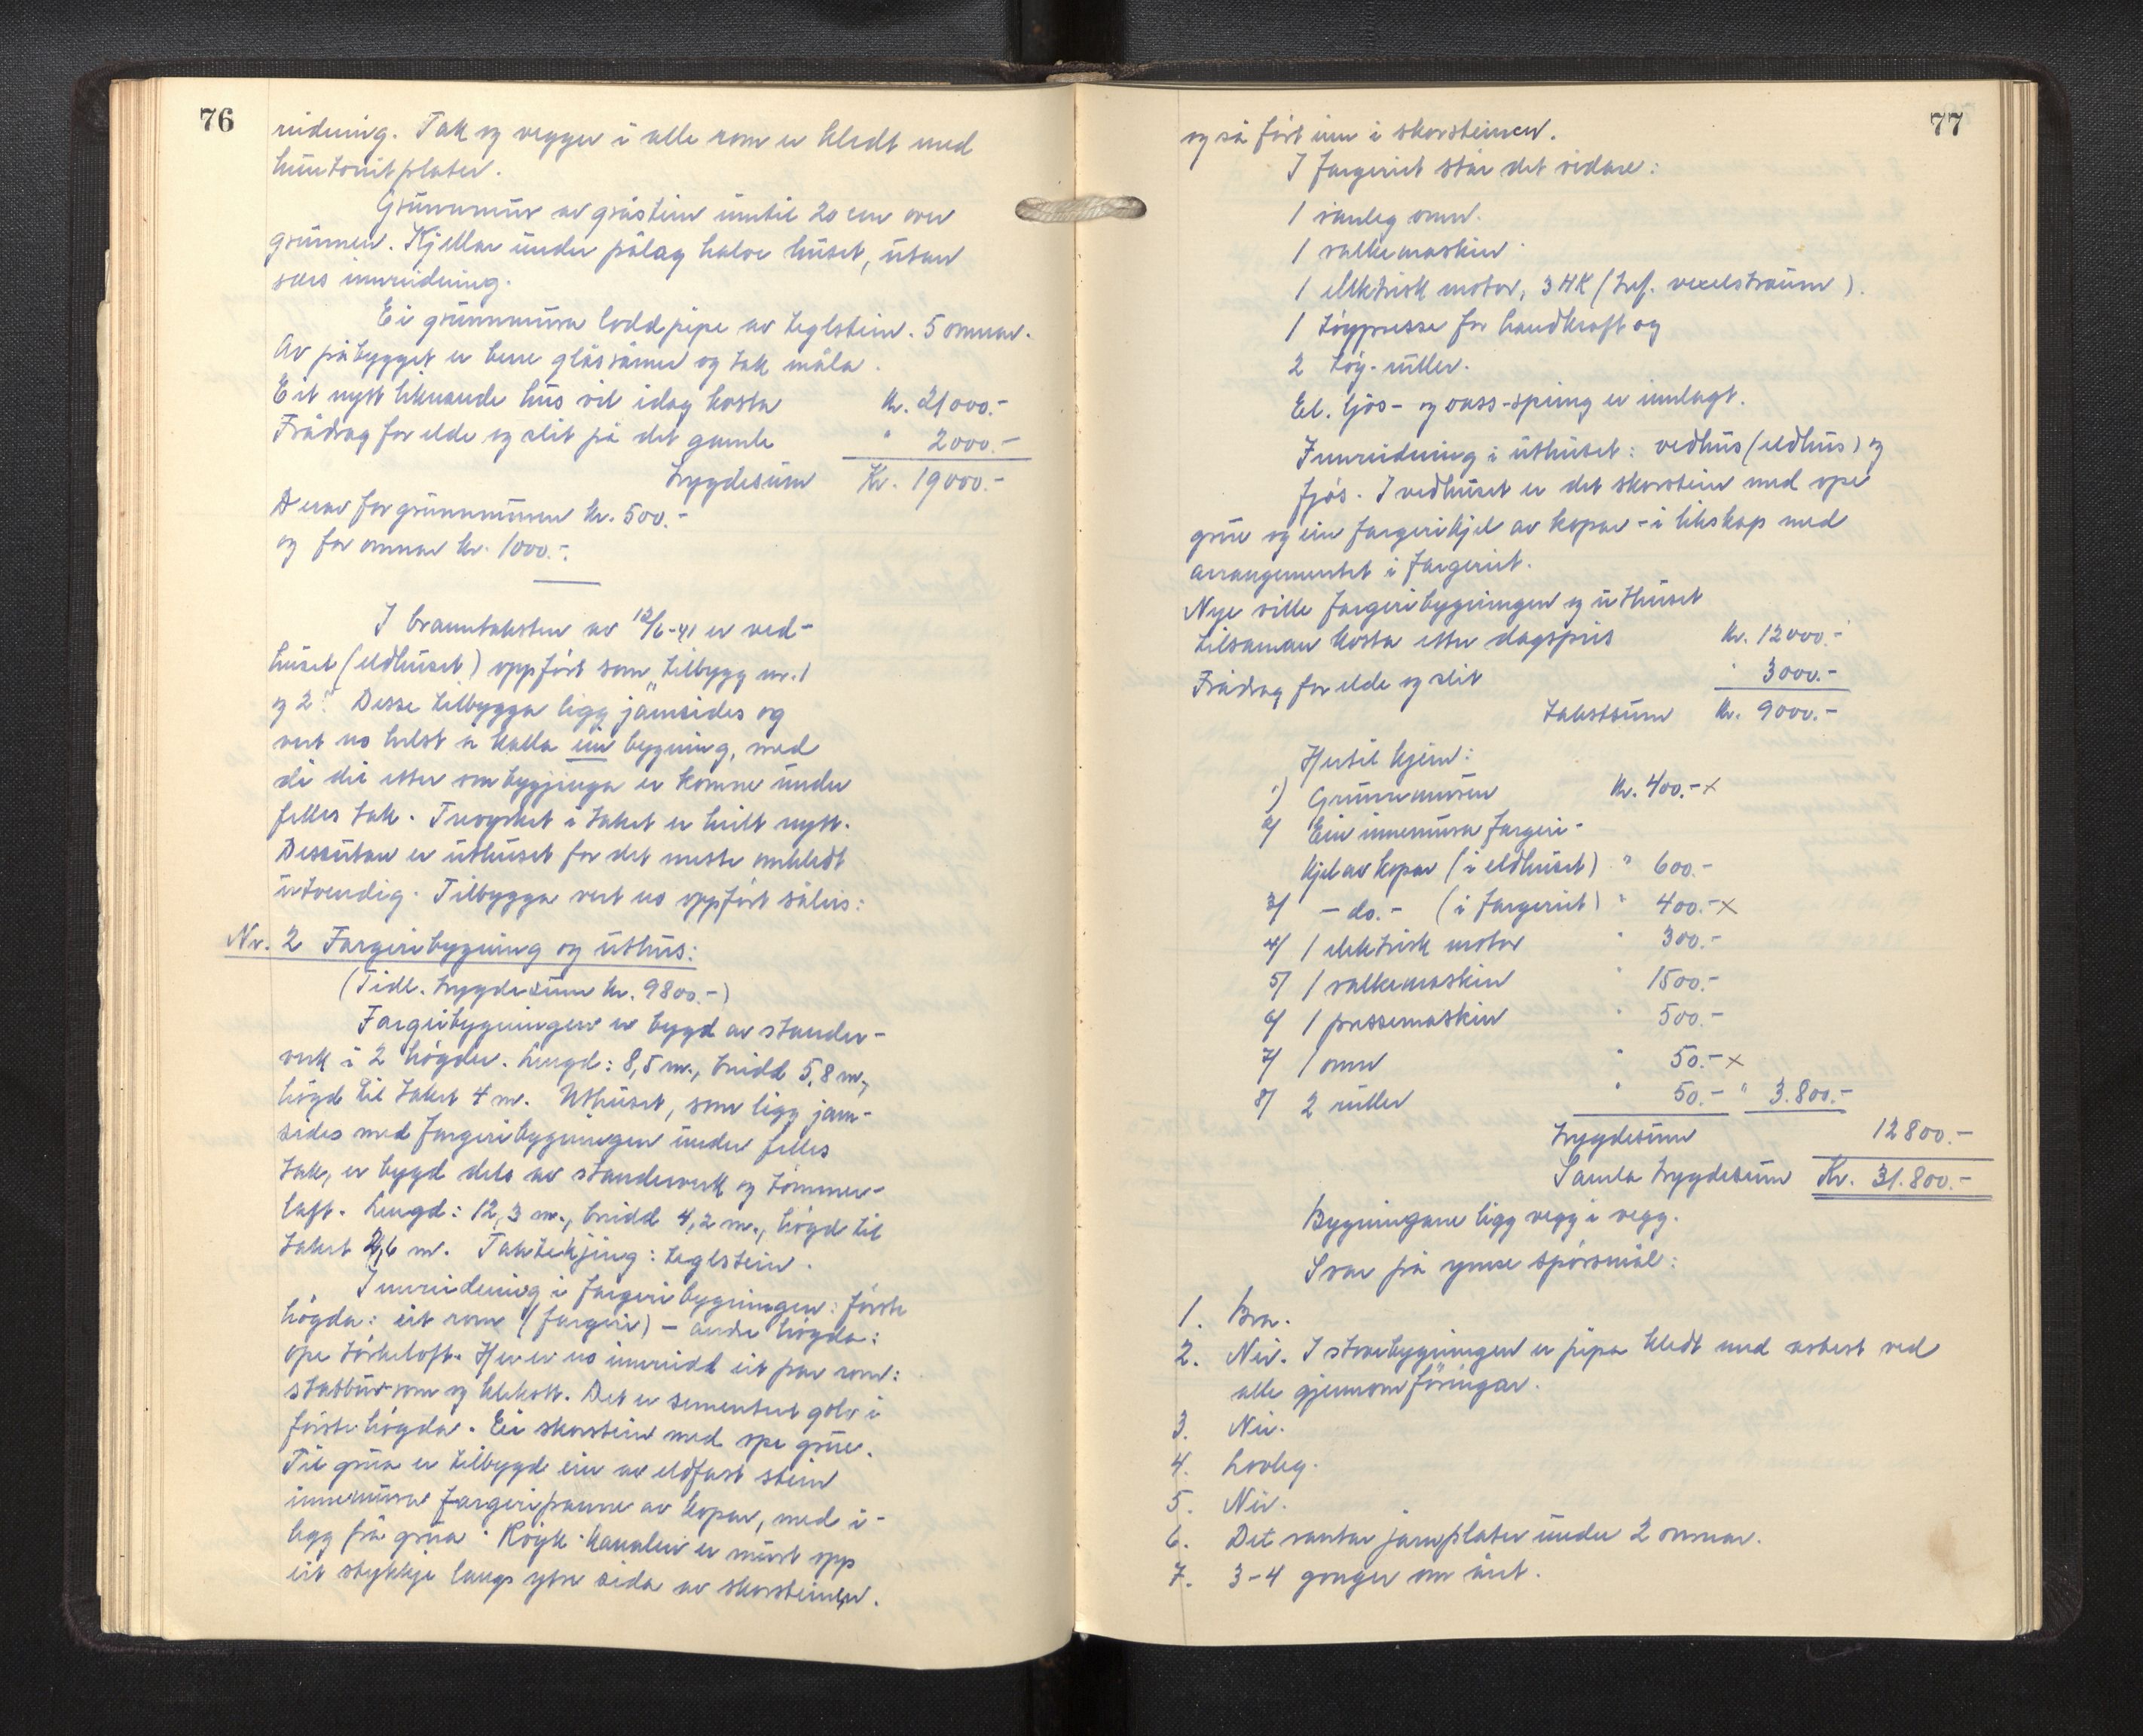 76
reidning. Tak og vegger i alle rom er kledt med
huntonitplater.
Grunnmur av gråstein inntil 20 cm over
grunnen. Kjellar under pålag halve huset, utan
særs innreidning.
Ei grunnmura loddpipe av teglstein. 5 omnar.
Av påbygget er berre glasrâmer og tak måla.
Eit nytt liknande hus vil idag kosta kr. 21000.-
Frådrag for elde og slit på det gamle " 2000.-
trygdesum Kr. 19000.-
Derav for grunnmuren kr. 500.-
og for omnar kr. 1000.-.
I branntaksten av 12/6-41 er ved-
huset (eldhuset) oppført som "tilbygg nr. 1
og 2". Desse tilbygga ligg jamsides og
vert no helst å kalla ein bygning, med
di dei etter ombygginga er komne under
felles tak. Treverket i taket er heilt nytt.
Dessutan er uthuset for det meste omkledt
utvendig. Tilbygga vert no oppført såleis:
Nr. 2 Fargeribygning og uthus:
(Tidl. trygdesum kr. 9800.-)
Fargeribygningen er bygd av stender-
verk i 2 høgder. Lengd: 8,5 m., breidd 5,8 m.,
høgd til taket 4 m. Uthuset, som ligg jam-
sides med fargeribygningen under felles
tak, er bygd dels av stenderverk og tømmer-
laft. Lengd: 12,3 m., breidd 4,2 m., høgd til
taket 2,6 m. Taktekjing: teglstein.
Innreidning i fargeribygningen: første
høgda: eit rom (fargeri) - andre høgda:
ope tørkeloft. Her er no innreidd eit par rom:
stabbursrom og klekott. Det er sementert golv i
første høgda. Ein skorstein med ope grue.
Til grua er tilbygd ein av eldfast stein
innemura fargeripanne av kopar, med i-
legg frå grua. Røyk-kanalen er murt opp
eit stykkje langs ytre sida av skorsteinen.
77
og så ført inn i skorsteinen.
I fargeriet står det vidare:
1 vanleg omn.
1 valkemaskin.
1 elektrisk motor, 3 HK (tref. vexelstraum).
1 tøypresse for handkraft og
2 tøy-ruller.
El. ljos- og vass-spring er innlagt.
Innreidning i uthuset: vedhus (eldhus) og
fjøs. I vedhuset er det skorstein med ope
grue og ein fargerikjel av kopar - i likskap med
arrangementet i fargeriet.
Nye ville fargeribygningen og uthuset
tilsaman kosta etter dagspris kr. 12000.-
Frådrag for elde og slit " 3000.-
Takstsum kr. 9000.-
Hertil kjem:
1) Grunnmuren kr. 400.- x
2/ Ein innemura fargeri-
kjel av kopar (i eldhuset) " 600.-
3/ - do. - (i fargeriet) " 400.- x
4/ 1 elektrisk motor " 300.-
5/ 1 valkemaskin " 1500.-
6/ 1 pressemaskin " 500.-
7/ 1 omn " 50.- x
8/ 2 ruller " 50.- " 3.800.-
trygdesum 12800.-
Samla trygdesum Kr. 31.800.-
Bygningane ligg vegg i vegg.
Svar på ymse spørsmål:
1. Bra.
2. Nei. I stovebygningen er pipa kledt med asbest ved
alle gjennomføringar.
3. Nei.
4. Lovleg.
5. Nei.
6. Det vantar jarnplater under 2 omnar.
7. 3-4 gonger om året.